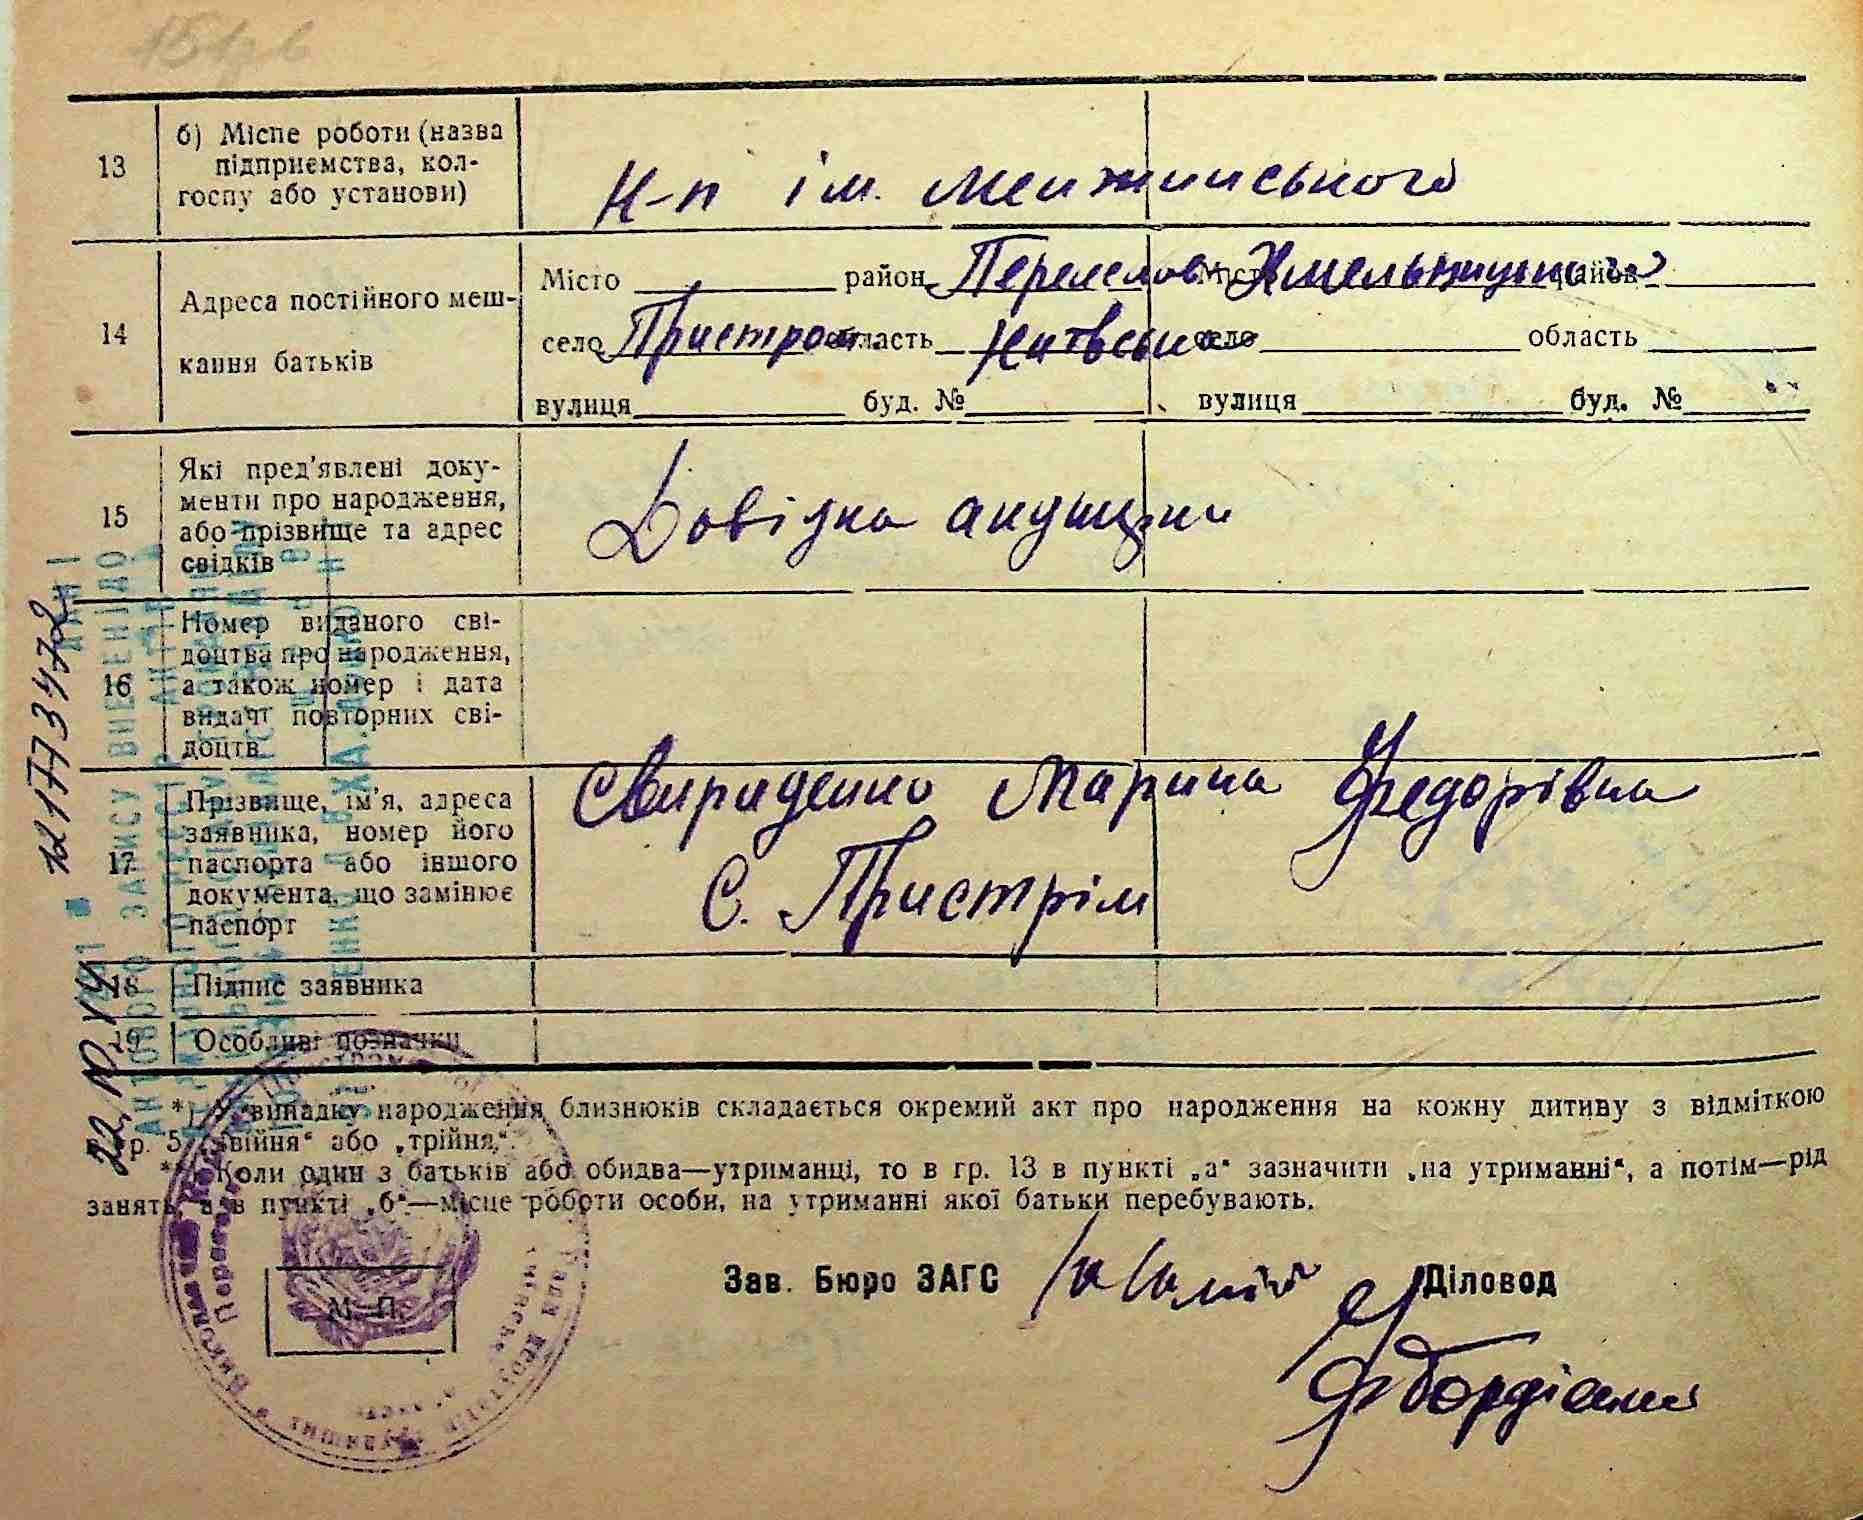 13
б) Місце роботи (назва
підприємства, кол-
госпу або установи)
К-п ім. Менжинського
14
Адреса постійного меш-
кання батьків
Місто район Переяслов-Хмельницький Місто район
село Пристром область Київська село область
вулиця буд. № вулиця буд. №
15
Які пред'явлені доку-
менти про народження,
або прізвище та адрес
свідків
Довідка акушерки
16
Номер виданого сві-
доцтва про народження,
а також номер і дата
видачі повторних сві-
доцтв
17
Прізвище, ім'я, адреса
заявника, номер його
паспорта або іншого
документа, що замінює
паспорт
Свириденко Марина Федорівна
С. Пристрім
18 Підпис заявника
19 Особливі позначки
*) У випадку народження близнюків складається окремий акт про народження на кожну дитину з відміткою
в гр. 5 „двійня“ або „трійня“.
**) Коли один з батьків або обидва—утриманці, то в гр. 13 в пункті „а“ зазначити „на утриманні“, а потім—рід
занять, а в пункті „б“—місце роботи особи, на утриманні якої батьки перебувають.
Зав. Бюро ЗАГС Діловод
М. П.